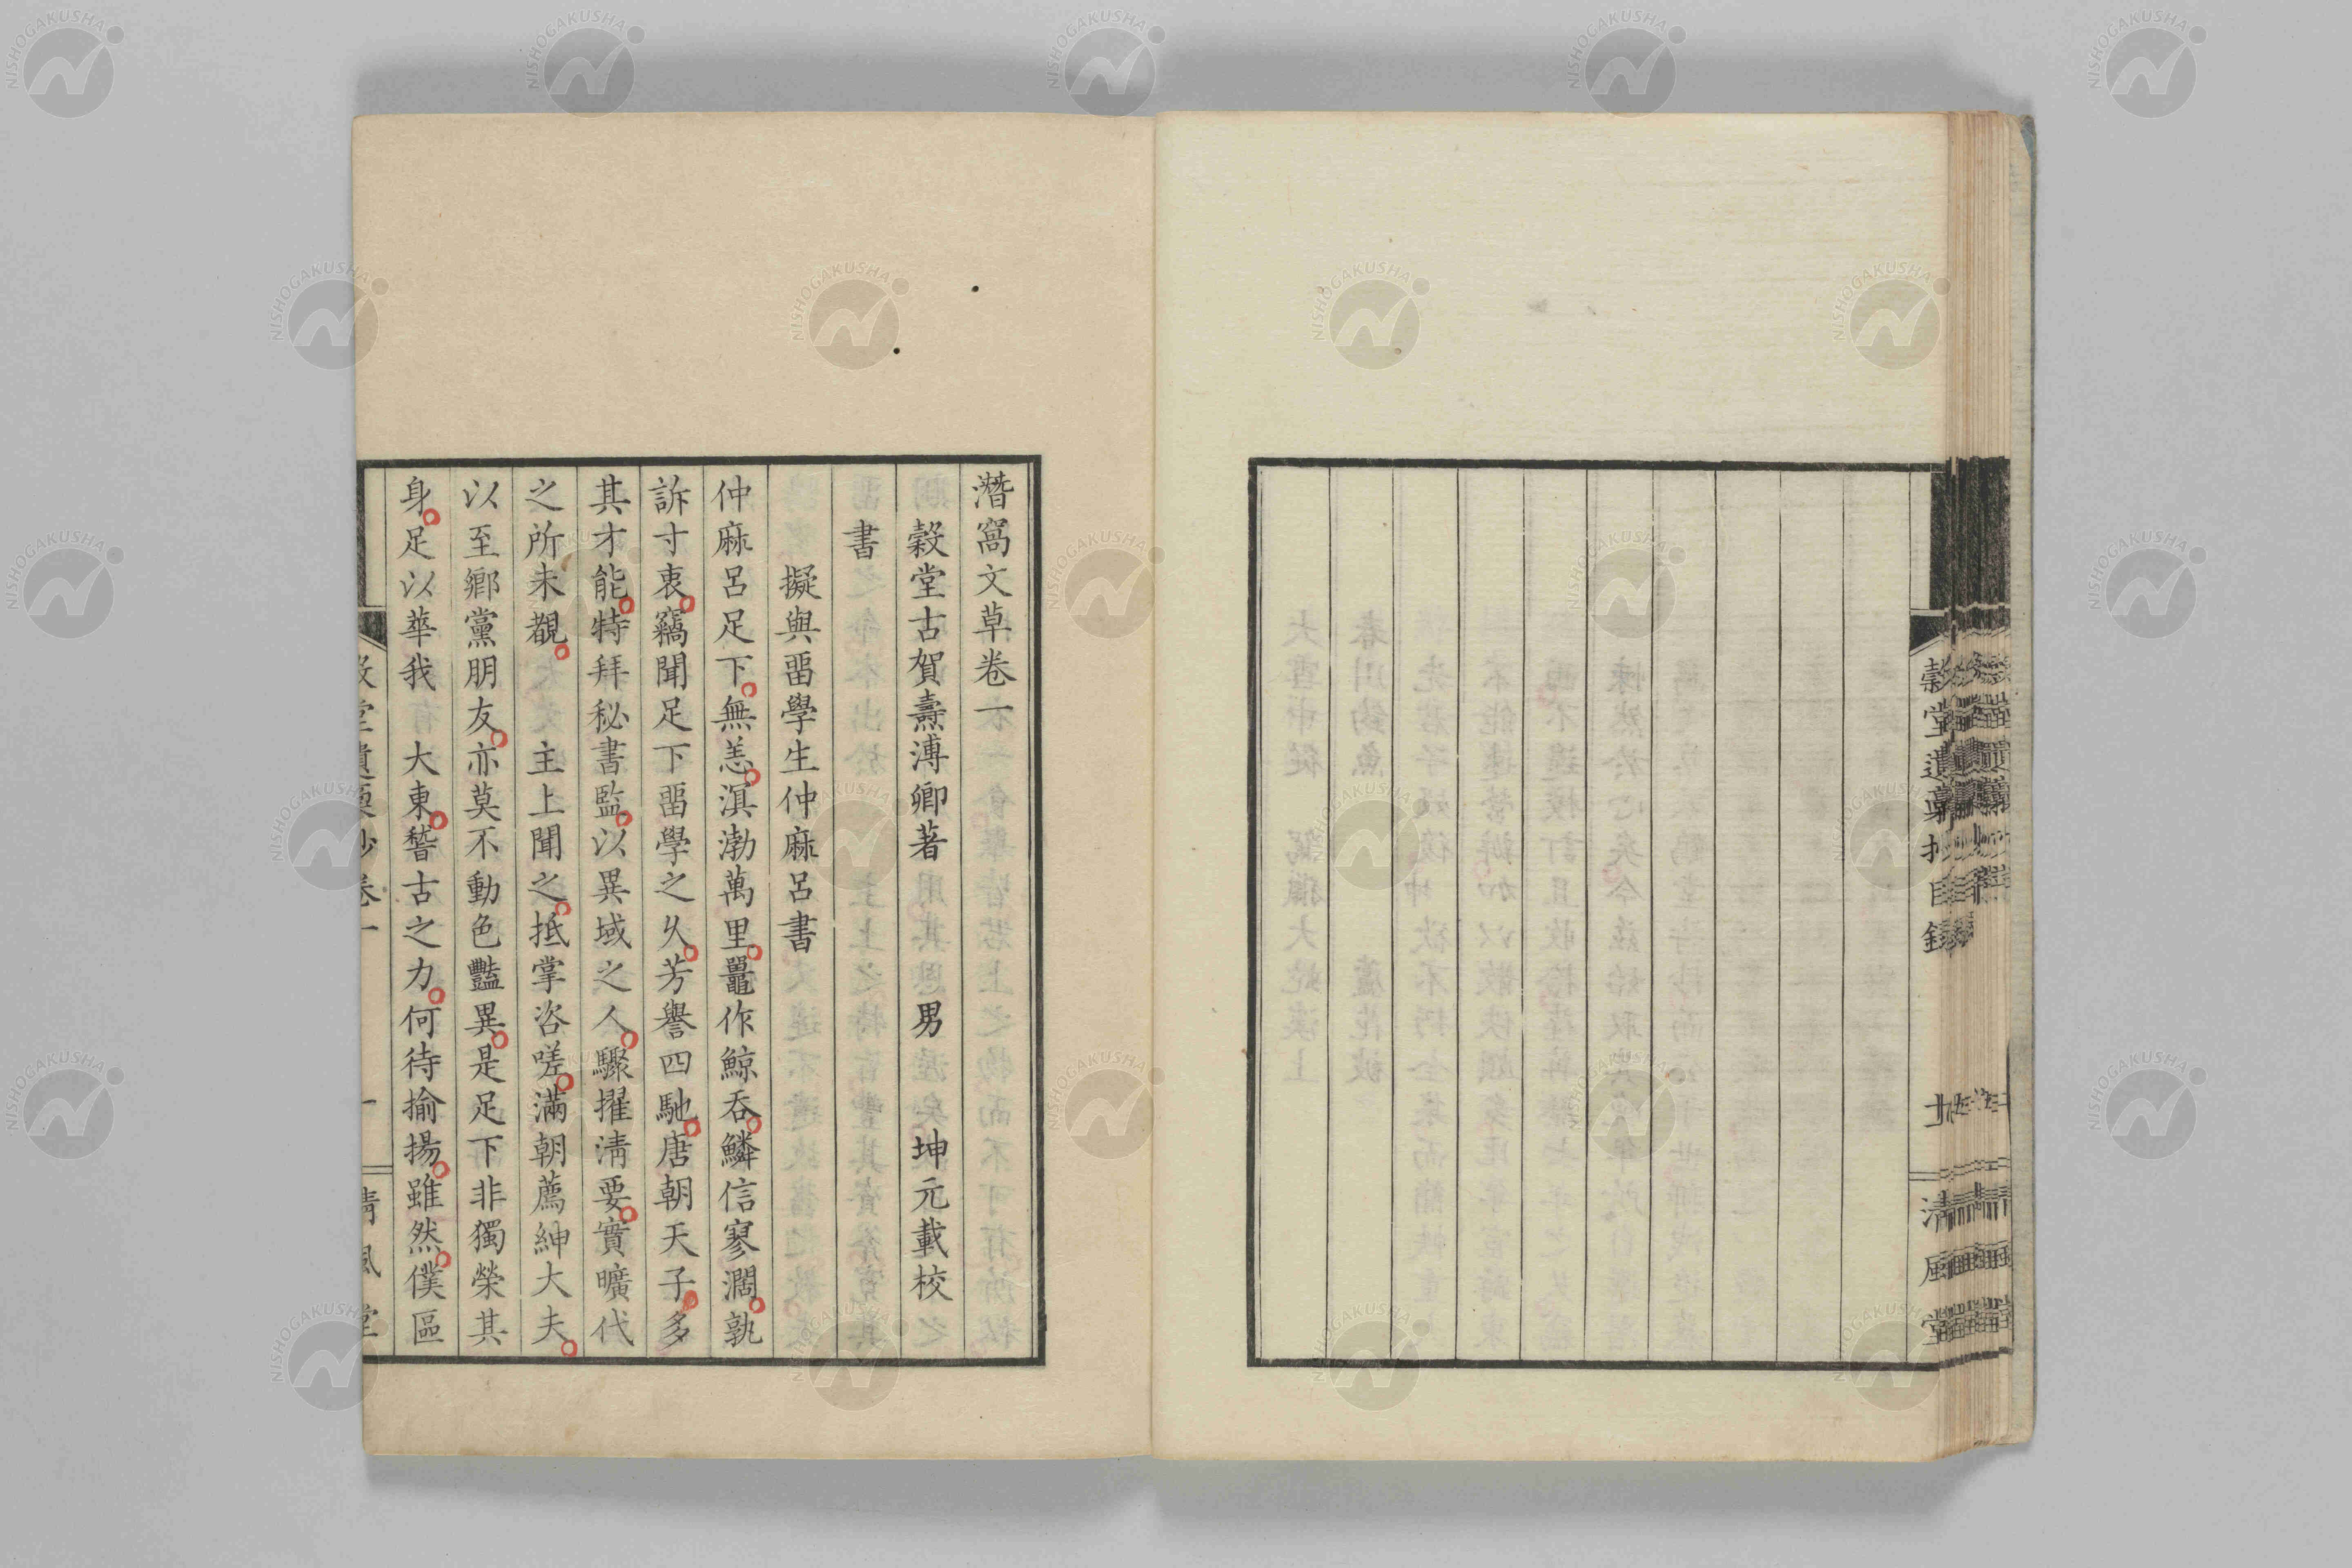 穀堂遺稾抄目錄
九
清風堂
潛窩文草卷一
穀堂古賀燾溥卿著　男　坤元載校
書
擬與畱學生仲麻呂書
仲麻呂足下。無恙。溟渤萬里。鼉作鯨吞。鱗信寥濶。孰
訴寸衷。竊聞足下畱學之久。芳譽四馳。唐朝天子。多
其才能。特拜秘書監。以異域之人。驟擢淸要。實曠代
之所未覩。　　主上聞之。抵掌咨嗟。滿朝薦紳大夫。
以至鄉黨朋友。亦莫不動色豔異。是足下非獨榮其
身。足以華我　大東。稽古之力。何待揄揚。雖然。僕區
NISHOGAKUSHA